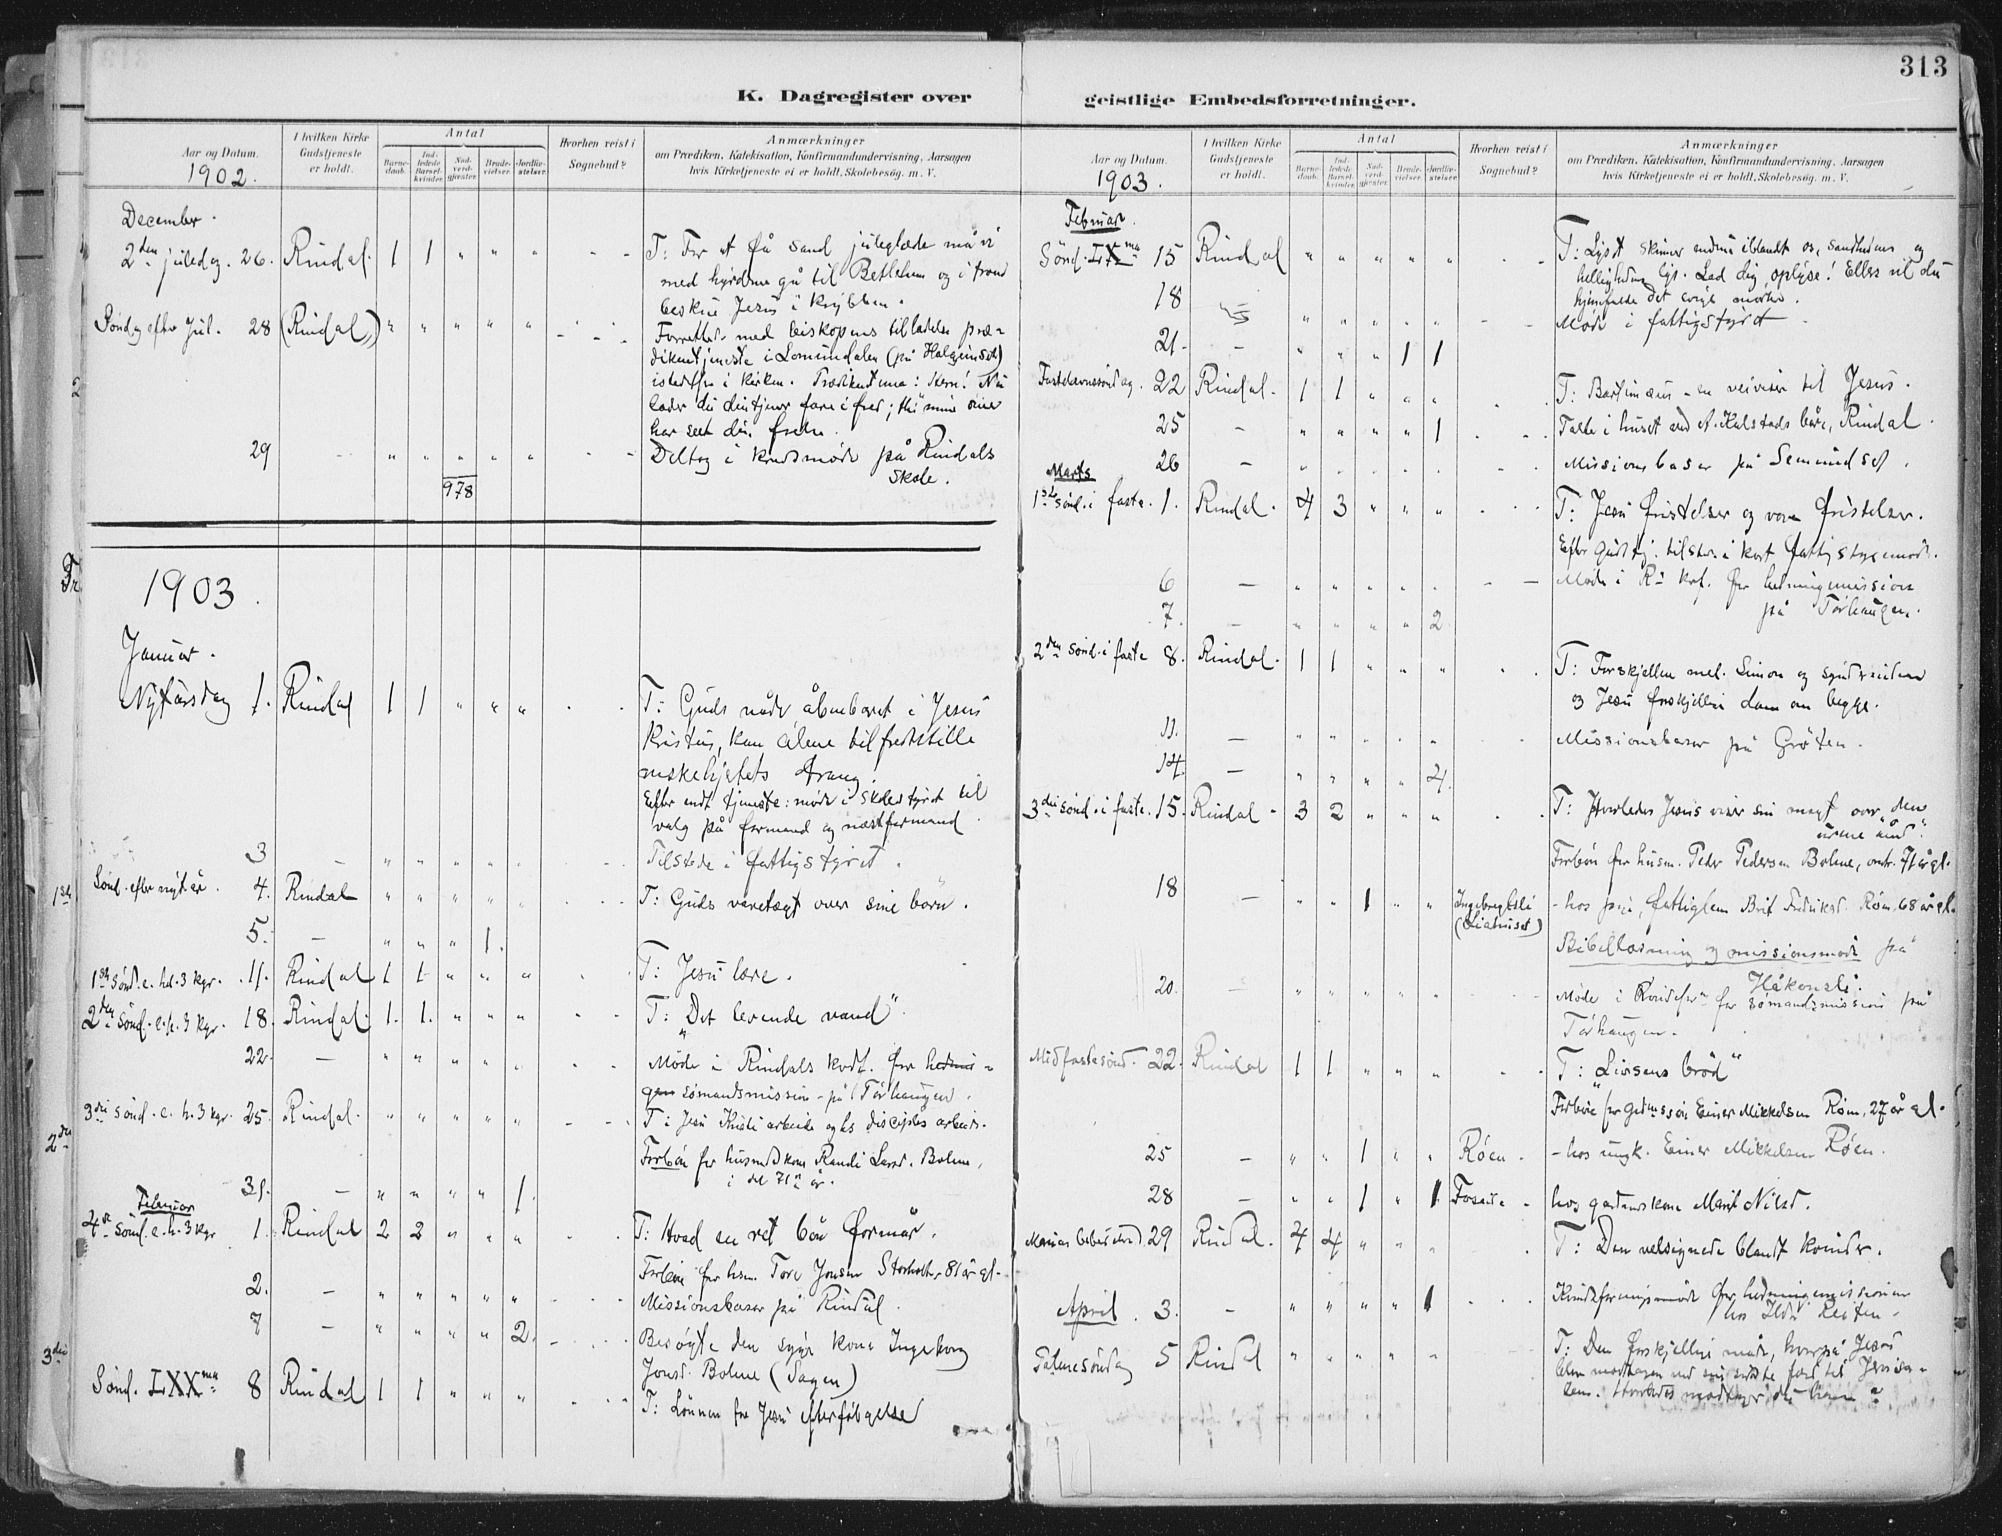 313
K. Dagregister over
geistlige Embedsforretninger.
Aar og Datum.
1902.
I hvilken Kirke Gudstjeneste er holdt.
Antal
Barnedaab.
Indledede Barselkvinder.
Nadverdgjæster.
Brudevielser.
Jordfæstelser.
Hvorhen reist i Sognebud?
Anmærkninger
om Prædiken, Katekisation, Konfirmandundervisning, Aarsagen
hvis Kirketjeneste ei er holdt, Skolebesøg. m. V.
December.
2den juledag. 26. Rindal. 1 1 " " " T: For at få sand juleglæde må vi
med hyrderne gå til Betlehem og i troen
beskue Jesus i krybben.
Søndag efter Jul. 28 (Rindal) " " " " " Forrettet med biskopens tilladelse præ-
dikentjeneste i Lomundalen (på Halgeimset)
istedetfor i kirken. Prædikentema: Herre! Nu
lader du din tjener fare i fred; thi mine øine
har seet din frelse.
29 " " " " " Deltog i kredsmøde på Rindals
Skole.
978
1903.
Januar.
Nytårsdag 1. Rindal 1 1 " " " T: Guds nåde, åbenbaret i Jesus
Kristus, kan alene tilfredsstille
trang.
Efter endt tjeneste: møde i skolestyret til
valg på formand og næstformand.
3 – " " " " " Tilstede i fattigstyret.
Sønd. efter nytår. 4. Rindal " " " " T: Guds varetægt over sine børn.
5. – " " " 1.
1ste sønd. e. hel. 3 kgr. 11. Rindal 1 1 " " " T: Jesu lære.
2den sønd. e. h. 3 kgr. 18. Rindal. 1. 1. " " " T: „Det levende vand".
22. – " " " " " Møde i Rindals kvdf. for hednin-
gem sømandsmission på Tørhaugen.
3die sønd. e. h. 3 kgr. 25. Rindal. " " " " " T: Jesu Kristi arbeide og hs disciples arbeide.
Forbøn for husmdskone Randi Larsd. Bolme,
i det 71de år.
31. – " " " " 1.
Februar
4de sønd. e. h. 3 kgr 1. Rindal 2 2 " " " T: Hvad en ret bøn formår.
Forbøn for hsm. Tore Jonsen Storholten 81 år gl.
2. – " " " " " Missionsbasar på Rindal.
7 – " " " " 2. Besøgte den syge kone Ingeborg
Jonsd. Bolme (Sagen)
Sønd. LXXma 8 Rindal 1 1 " " " T: Lønnen for Jesu efterfølgelse
Aar og Datum.
1903.
I hvilken Kirke Gudstjeneste er holdt.
Antal
Barnedaab.
Indledede Barselkvinder.
Nadverdgjæster.
Brudevielser.
Jordfæstelser.
Hvorhen reist i Sognebud?
Anmærkninger
om Prædiken, Katekisation, Konfirmandundervisning, Aarsagen
hvis Kirketjeneste ei er holdt, Skolebesøg. m. V.
Februar.
Sønd. LXma 15 Rindal " " " " " T: Lyset skinner endnu iblandt os, sandhedens og
hellighedens lys. Lad dig oplyse! Ellers vil du
hjemfalde det evige mørke.
18 " " " " " Møde i fattigstyret.
21. – " " " 1 1
Fastelavnssøndag. 22 Rindal. 1 1 " " " T: Bartimæus – en veiviser til Jesus.
25 – " " " " 1 Talte i huset ved A. Kalstads båre, Rindal.
26 – " " " " " Missionsbasar på Semundset.
Marts
1ste sønd. i faste. 1. Rindal. 4 3 " " " T: Jesu fristelser og vore fristelser.
Efter gudstj. tilste. i kort fattigstyremøde.
6 – " " " " " Møde i R-kvf. for hedningemission
på Tørhaugen.
7. – " " " " 2
2den sønd. i faste 8. Rindal. 1 1 " " " T: Forskjellen mel. Simon og synderinden
og Jesu forskjellige dom om begge.
11. – " " " " " Missionsbasar på Grøten.
14. – " " " " 4.
3die sønd. i faste. 15. Rindal 3 2 " " " T: Hvorledes Jesus viser sin magt over „den
urene ånd".
Forbøn for husm. Peder Pedersen Bolme, omtr. 71 år gl.
18 – " " 1 " " Ingebregtsli (Liahuset) – hos fattiglem Brit Fredriksd. Røm. 68 år gl.
Bibellæsning og missionsmøde på
Håkonsli.
20. – " " " " " Møde i for sømandsmission på
Tørhaugen.
Midfastesønd. 22. Rindal 1 1 " " " T: „Livsens brød"
Forbøn for gdmssøn Einer Mikkelsen Røm, 27 år gl.
25 – " " 1 " " Røen. – hos ungk. Einer Mikkelsen Røen.
28 – " " 1 " 1 – hos gardmskone Marit Nilsd.
Marias bebudelsed. 29 Rindal. 4 4 " " " T: Den velsignede blandt kvinder.
April. 3. – " " " " 1 Kvindeforeningsmøde for hedningemissionen
hos Reiten.
Palmesøndag 5 Rindal " " " " " T: Den forskjellige måde, hvorpå Jesus
blev modtagen ved sin sidste færd til Jerusa-
lem. Hvorledes modtager du ham?